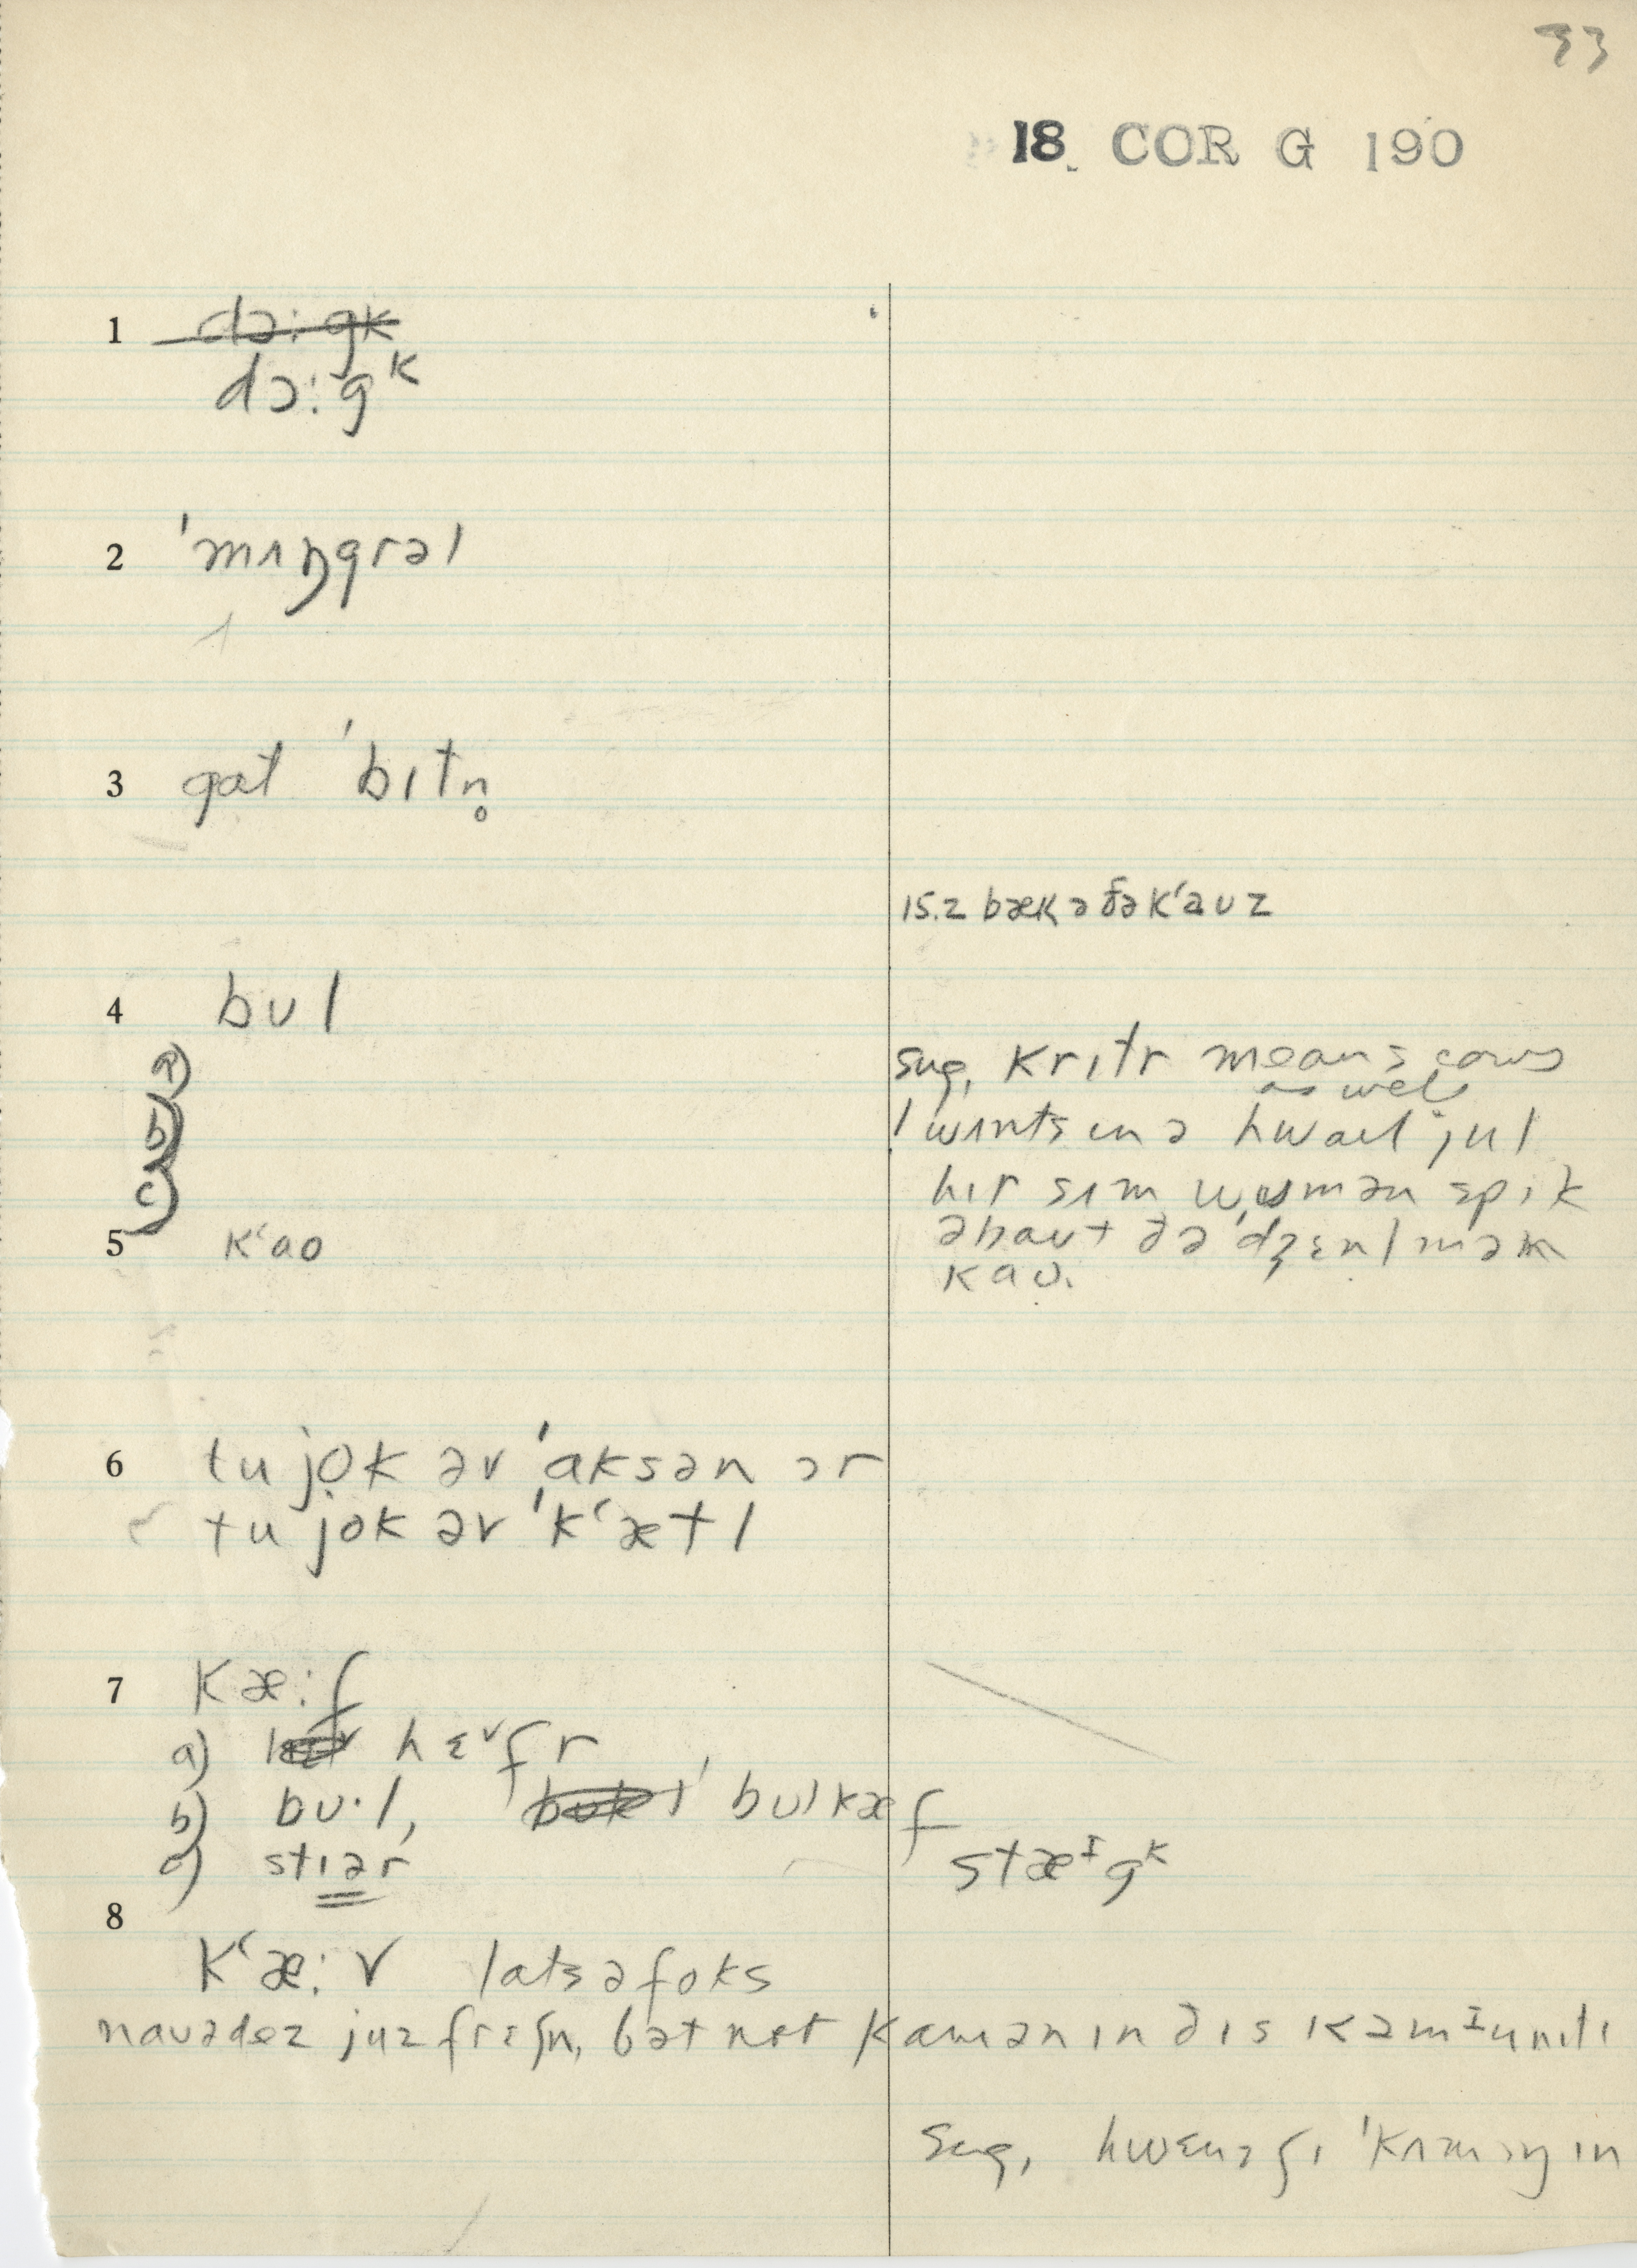 33
18. COR G 190
1 dɔ:gk
dɔ:gᴷ
2 ˈmʌŋgrəl
3 gat ˈbɪtn̥
15.2 bæk ə ðə kʻauz
4 bʊl
a)
b)
c)
sug, krɪtr means cows
as well
hɪr sʌm wʊmən spik
əbaut ðə ˈdʒɛnlmən
kaʊ.
5 kʻao
6 tu jok əv ˈaksən ɔr
tu jok əv ˈkʻætl
7 kæ:f
a) hɛᵛfr
b) bʊ·l, bʊlkæf
c) stɪər
stæᴵgᴷ
8
kʻæ:v latsəfoks
nauədez juz frɛʃn, bət nɔt kamən ɪn ðɪs kəmᴵunɪtɪ
sug, hwɛnəʃɪ ˈkʌmɪŋ ɪn